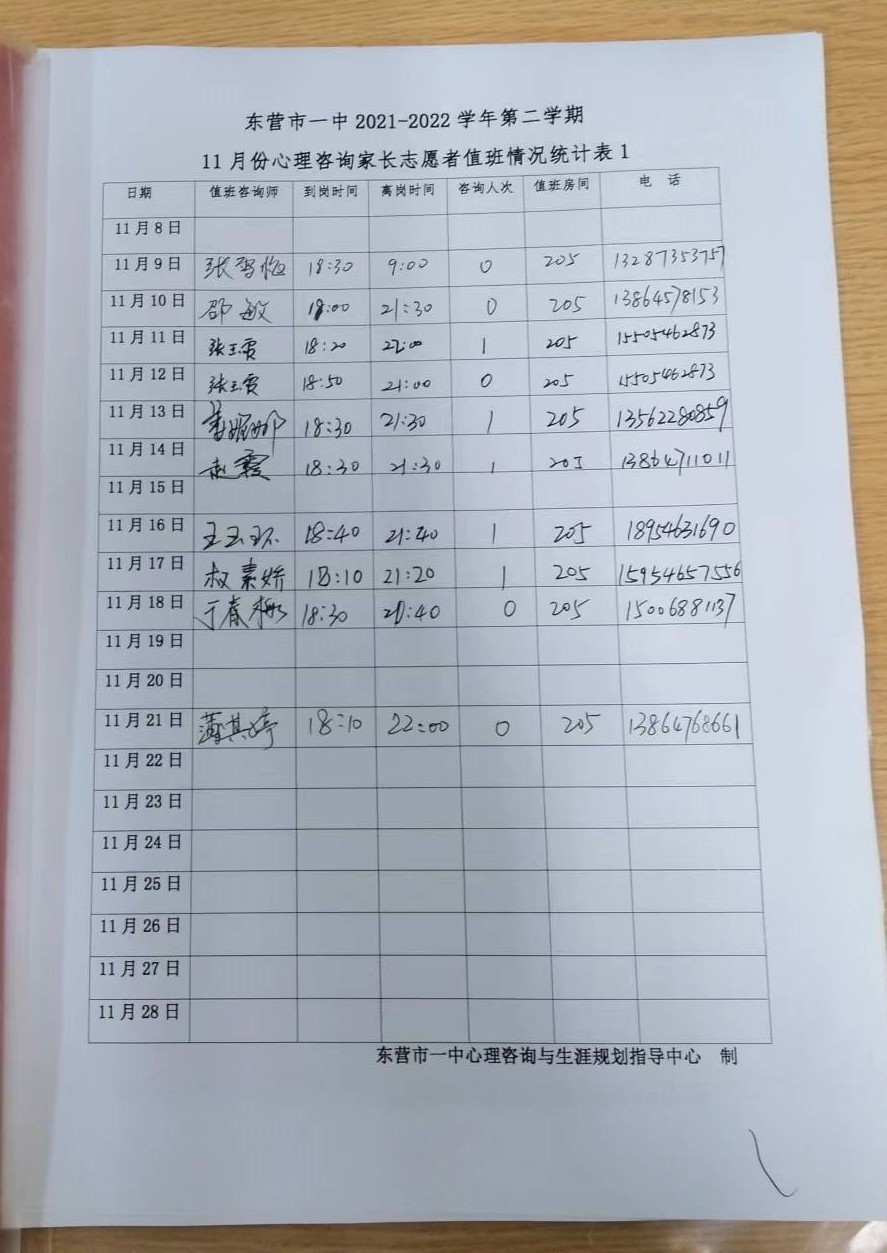 东营市一中 2021-2022 学年第二学期
11 月份心理咨询家长志愿者值班情况统计表 1
日期 值班咨询师 到岗时间 离岗时间 咨询人次 值班房间 电 话
11 月 8 日
11 月 9 日 18:30 9:00 0 205 13287353757
11 月 10 日 邵敏 18:00 21:30 0 205 13864578153
11 月 11 日 张玉霞 18:20 22:00 1 205 15505462873
11 月 12 日 张玉霞 18:50 21:00 0 205 15505462873
11 月 13 日 18:30 21:30 1 205 13562280859
11 月 14 日 赵霞 18:30 21:30 1 205 13864711011
11 月 15 日
11 月 16 日 王玉环 18:40 21:40 1 205 18954631690
11 月 17 日 18:10 21:20 1 205 15954657556
11 月 18 日 于春梅 18:30 21:40 0 205 15006881137
11 月 19 日
11 月 20 日
11 月 21 日 薄其婷 18:10 22:00 0 205 13864768661
11 月 22 日
11 月 23 日
11 月 24 日
11 月 25 日
11 月 26 日
11 月 27 日
11 月 28 日
东营市一中心理咨询与生涯规划指导中心 制